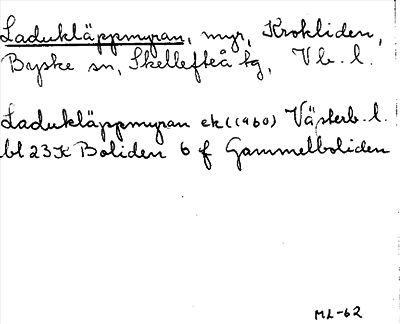 Ladukläppmyran, myr, Krokliden,
Byske sn, Skellefteå tg, Vb. l.
Ladukläppmyran ek (1960) Västerb. l.
bl 23K Boliden 6 f Gammelboliden
ML-62